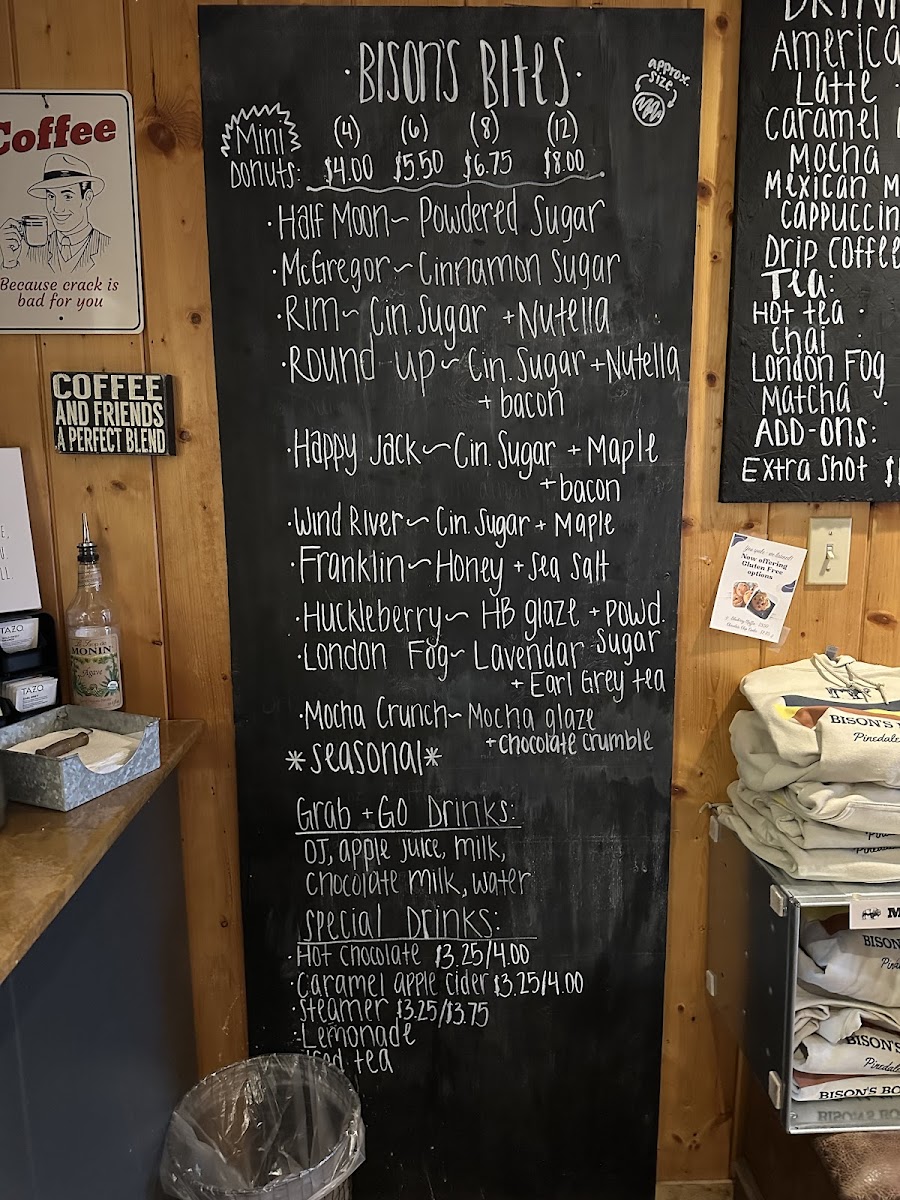 Coffee
Because crack is
bad for you
COFFEE
AND FRIENDS
A PERFECT BLEND
TAZO
TAZO
MONIN
Agave
·Bison's Bites·
approx.
size
Mini
Donuts:
(4) (6) (8) (12)
$4.00 $5.50 $6.75 $8.00
·Half Moon~ Powdered Sugar
·McGregor~Cinnamon Sugar
·Rim~ Cin. Sugar +Nutella
·Round-up~Cin. Sugar +Nutella
+ bacon
·Happy Jack~Cin. Sugar + Maple
+bacon
·Wind River~ Cin. Sugar + Maple
·Franklin~Honey + sea salt
·Huckleberry~ HB glaze + powd.
Sugar
·London Fog~ Lavendar
+ Earl Grey tea
·Mocha Crunch~ Mocha glaze
+chocolate crumble
*seasonal*
Grab +GO Drinks:
OJ, apple juice, milk,
chocolate milk, water
Special Drinks:
·Hot chocolate $3.25/4.00
·caramel apple cider $3.25/4.00
·steamer $3.25/$3.75
·Lemonade
iced tea
Latte
caramel
Mocha
Mexican M
cappuccin
Drip coffee
Tea:
Hot tea ·
Chai
London Fog
Matcha ·
ADD-ONS:
Extra shot $
Now offering
Gluten Free
options
BISON'S B
Pinedale
BISON'S
BISON'S BO
Pinedale
BISON'S BO
BISON'S BO